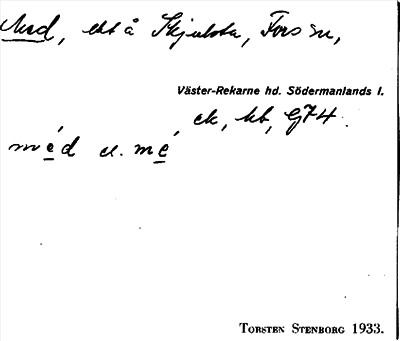 Mad, ett å Skjulsta, Fors sn,
Väster-Rekarne hd. Södermanlands l.
ek, kb, G74.
méd el. mé
TORSTEN STENBORG 1933.